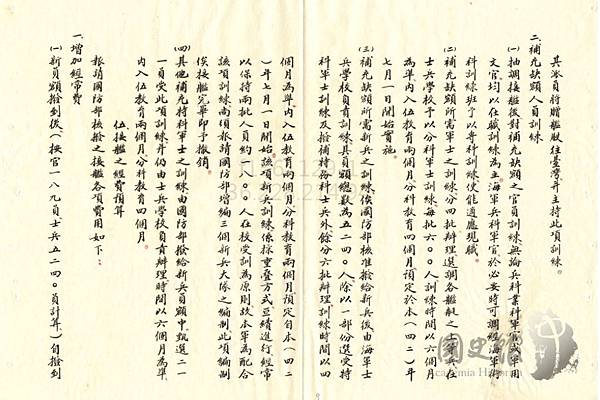 其派員將贈艦駛往臺灣并主持此項訓練。
二、補充缺額人員訓練
(一)抽調接艦後對補充缺額之官員訓練無論兵科業科軍官或軍用
文官均以在職訓練為主海軍兵科軍官於必要時可調經海軍術
科訓練班予以專科訓練使能適應現職。
(二)補充缺額所需軍士之訓練分四批辦理選調各艦艇之士等兵在
士兵學校予以分科軍士訓練每批六〇〇人訓練時間以六個月
為準內入伍教育兩個月分科教育四個月預定於本(四二)年
七月一日開始實施
(三)補充缺額所需新兵之訓練俟國防部核准撥給新兵後由海軍士
兵學校負責訓練其員額總數為五二四〇人除以一部份選受特
科軍士訓練及撥補特各科士兵外餘分六批辦理訓練時間以四
個月為準內入伍教育兩個月分科教育兩個月預定自本(四二
)年七月一日開始該項新兵訓練係採重疊方式並續進行經常
以保持兩批人員約一八〇〇人在校受訓為原則故本軍為配合
該項訓練而須報請國防部增編三個新兵大隊之編制此項編制
俟接艦完畢即予撤銷
(四)其他補充特科軍士之訓練由國防部撥給新兵員額中甄選二一
一員受此項訓練并仍由士兵學校負責辦理時間以六個月為準
內入伍教育兩個月分科教育四個月。
伍接艦之經費預算
報請國防部核撥之接艦各項費用如下:
一、增加經常費
(一)新員額撥到後(按官一八九員士兵五二四〇員計算)自撥到
國史館
Academia Historica